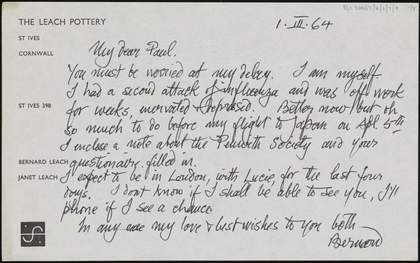 THE LEACH POTTERY
1. III. 64
ST IVES
CORNWALL
My dear Paul.
You must be worried at my delay. I am myself
I had a second attack of influenza and was off work
for weeks, enervated & depressed. Better now but oh
ST IVES 398
so much to do before my flight to Japan on Apl. 5th
I enclose a note about the Penwith Society and your
questionaire filled in.
BERNARD LEACH
JANET LEACH
I expect to be in London, with Lucie, for the last four
days. I dont know if I shall be able to see you, I'll
phone if I see a chance.
In any case my love & best wishes to you both
Bernard